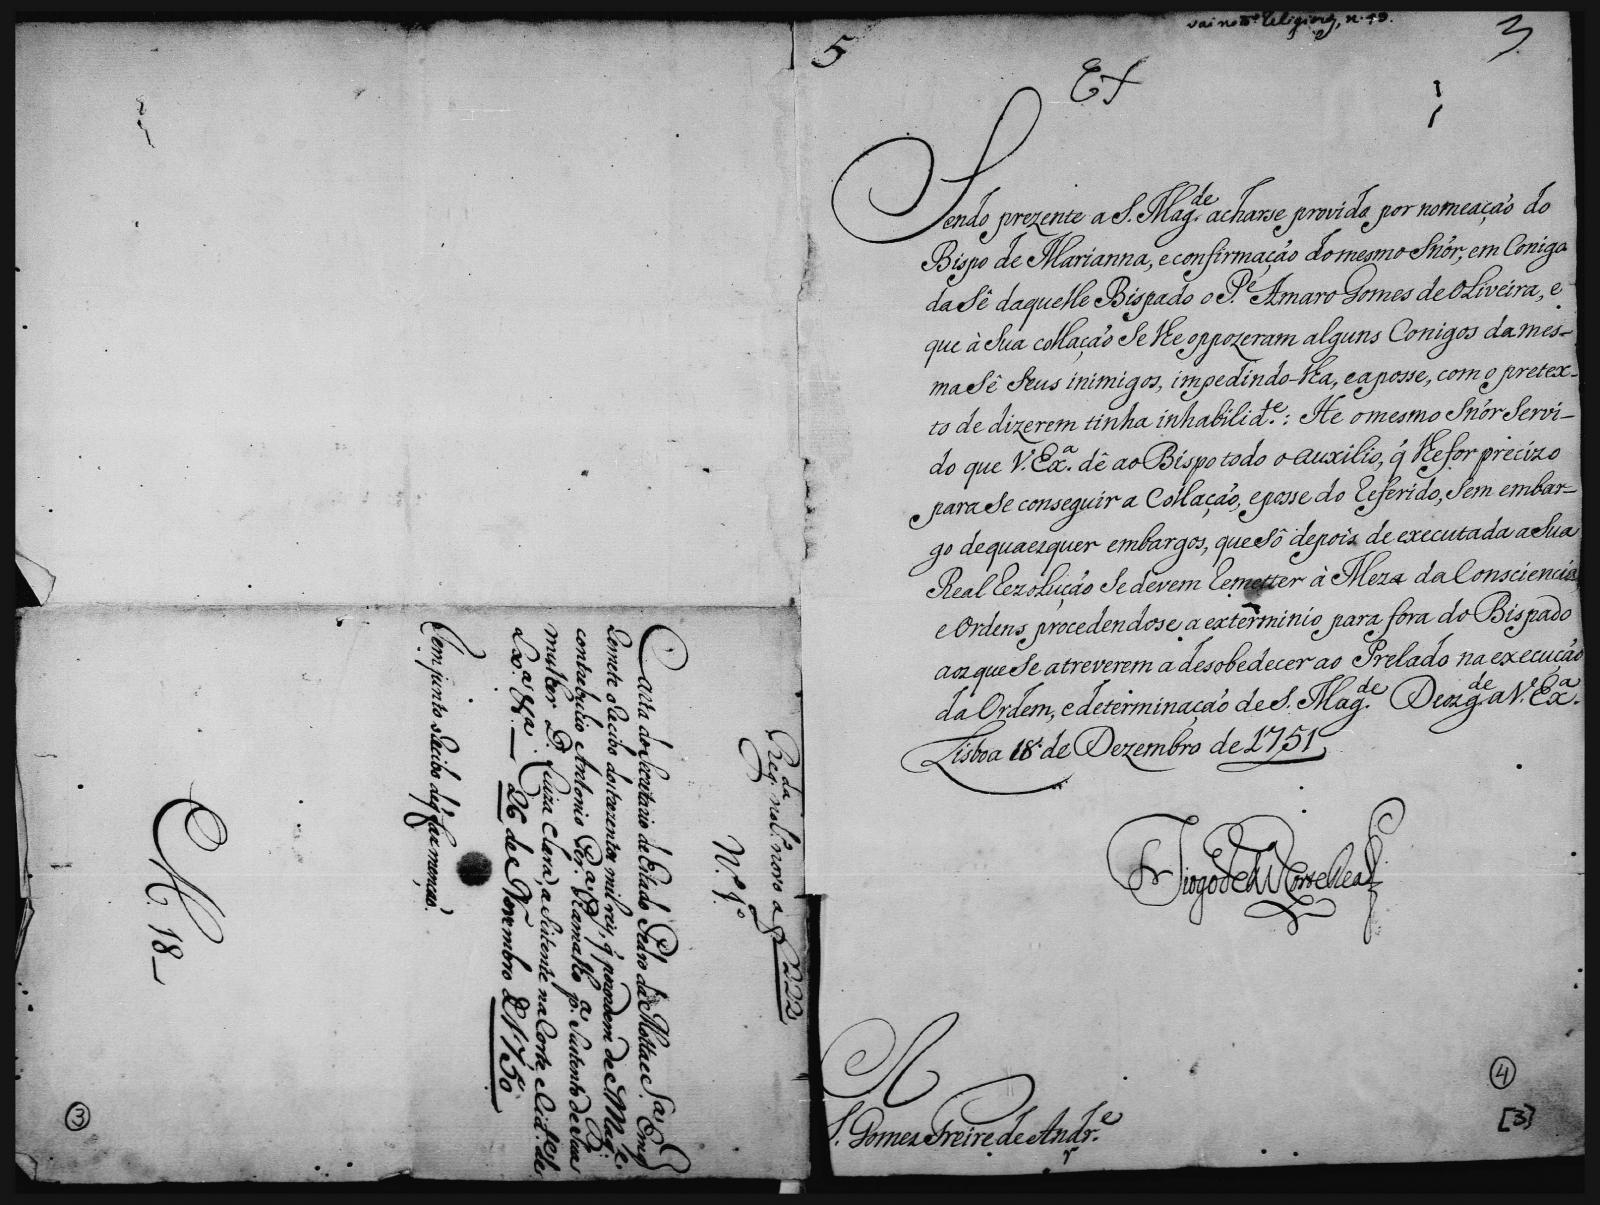 5
3
Sendo prezente a S. Mag.de acharse provido por nomeação do
Bispo de Marianna, e confirmação do mesmo Snõr, em Coniga
da Sê daquelle Bispado o P.e Amaro Gomes de Oliveira, e
que à sua collação se lhe oppozeram alguns Conigos da mes-
ma Sê seus inimigos, impedindo-lha, e a posse, com o pretex-
to de dizerem tinha inhabilid.e: He o mesmo Snõr servi-
do que V. Ex.a dê ao Bispo todo o auxilio, q̃ lhe for precizo
para se conseguir a Collação, e posse do referido, sem embar-
go de quaezquer embargos, que sô depois de executada a sua
Real rezolução se devem remetter à Meza da Consciencia
e Ordens, procedendose a exterminio para fora do Bispado
aoz que se atreverem a desobedecer ao Prelado na execução
da Ordem, e determinação de S. Mag.de Deoz g.de a V. Ex.a
Lisboa 18 de Dezembro de 1751
Diogo de M Corte Real
S. Gomez Freire de Andr.e
4
[3]
Reg.da no L.o novo a f 222
N.o 1.o
Carta do Secretario de Estado Pedro da Motta e S.a Em q
Remete o recibo dos trezentos mil reis, q̃
contrebuhio Antonio Ramalho p.a Sustento de Sua
mulher D. Luiza Clara, a Sistente na Corte e Cid.e de
Lx.a — 26 de Novembro de 1750
Tem junto o recibo de q̃ faz menção.
M. 18—
3